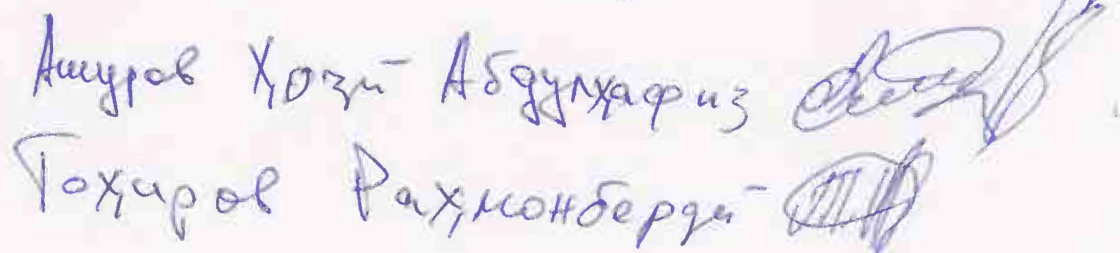 Ашуров Ҳозӣ Абдулҳафиз
Тоҳиров Раҳмонбердӣ